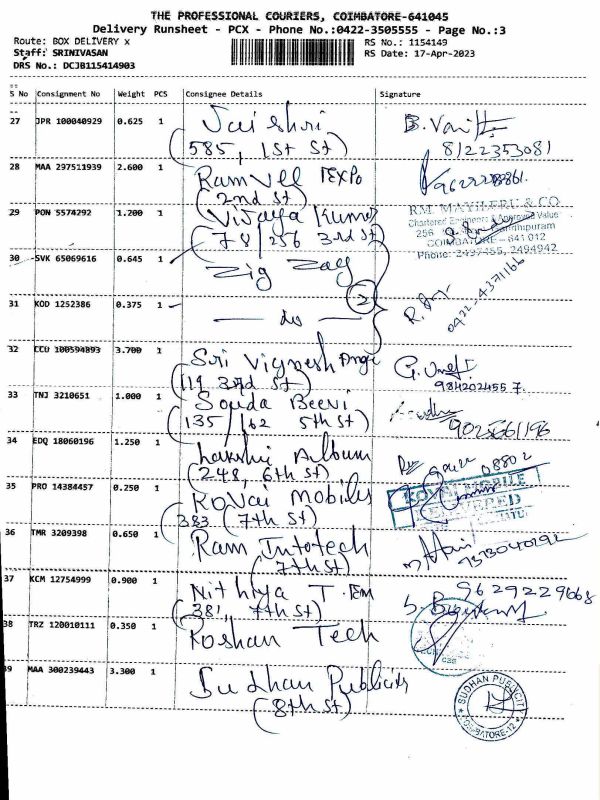 THE PROFESSIONAL COURIERS, COIMBATORE-641045
Delivery Runsheet - PCX - Phone No.:0422-3505555 - Page No.:3
Route: BOX DELIVERY x
RS No.: 1154149
Staff: SRINIVASAN
RS Date: 17-Apr-2023
DRS No.: DCJB115414903
S No Consignment No Weight PCS Consignee Details Signature
27 JPR 100040929 0.625 1 Jai shri
(585, 1st st)
8122353081
28 MAA 297511939 2.600 1 Ram Vel EXPO
(2nd st)
29 PON 5574292 1.200 1 Vijaya Kumar
(78/256 3rd st)
& CO
Chartered Engineers & Approved Value
256
COIMBATORE - 641 012
Phone: 2497455, 2494942
30 SVK 65069616 0.645 1 Zig Zag
2
31 KOD 1252386 0.375 1 — do —
0422-4371166
32 CCU 100594893 3.700 1 Sri Vignesh
(119 3rd st)
33 TNJ 3210651 1.000 1 Souda Beevi
(135/162 5th st)
34 EDQ 18060196 1.250 1 Lakshi Album
(248, 6th st)
35 PRO 14384457 0.250 1 Kovai Mobiles
(383 (7th st)
36 TMR 3209398 0.650 1 Ram Infotech
(7th st)
37 KCM 12754999 0.900 1 Nithiya T.
(381, 7th st)
9629229668
38 TRZ 120010111 0.350 1 Roshan Tech
39 MAA 300239443 3.300 1 Sudhan Publicity
(8th st)
SUDHAN PUBLICITY
COIMBATORE-12